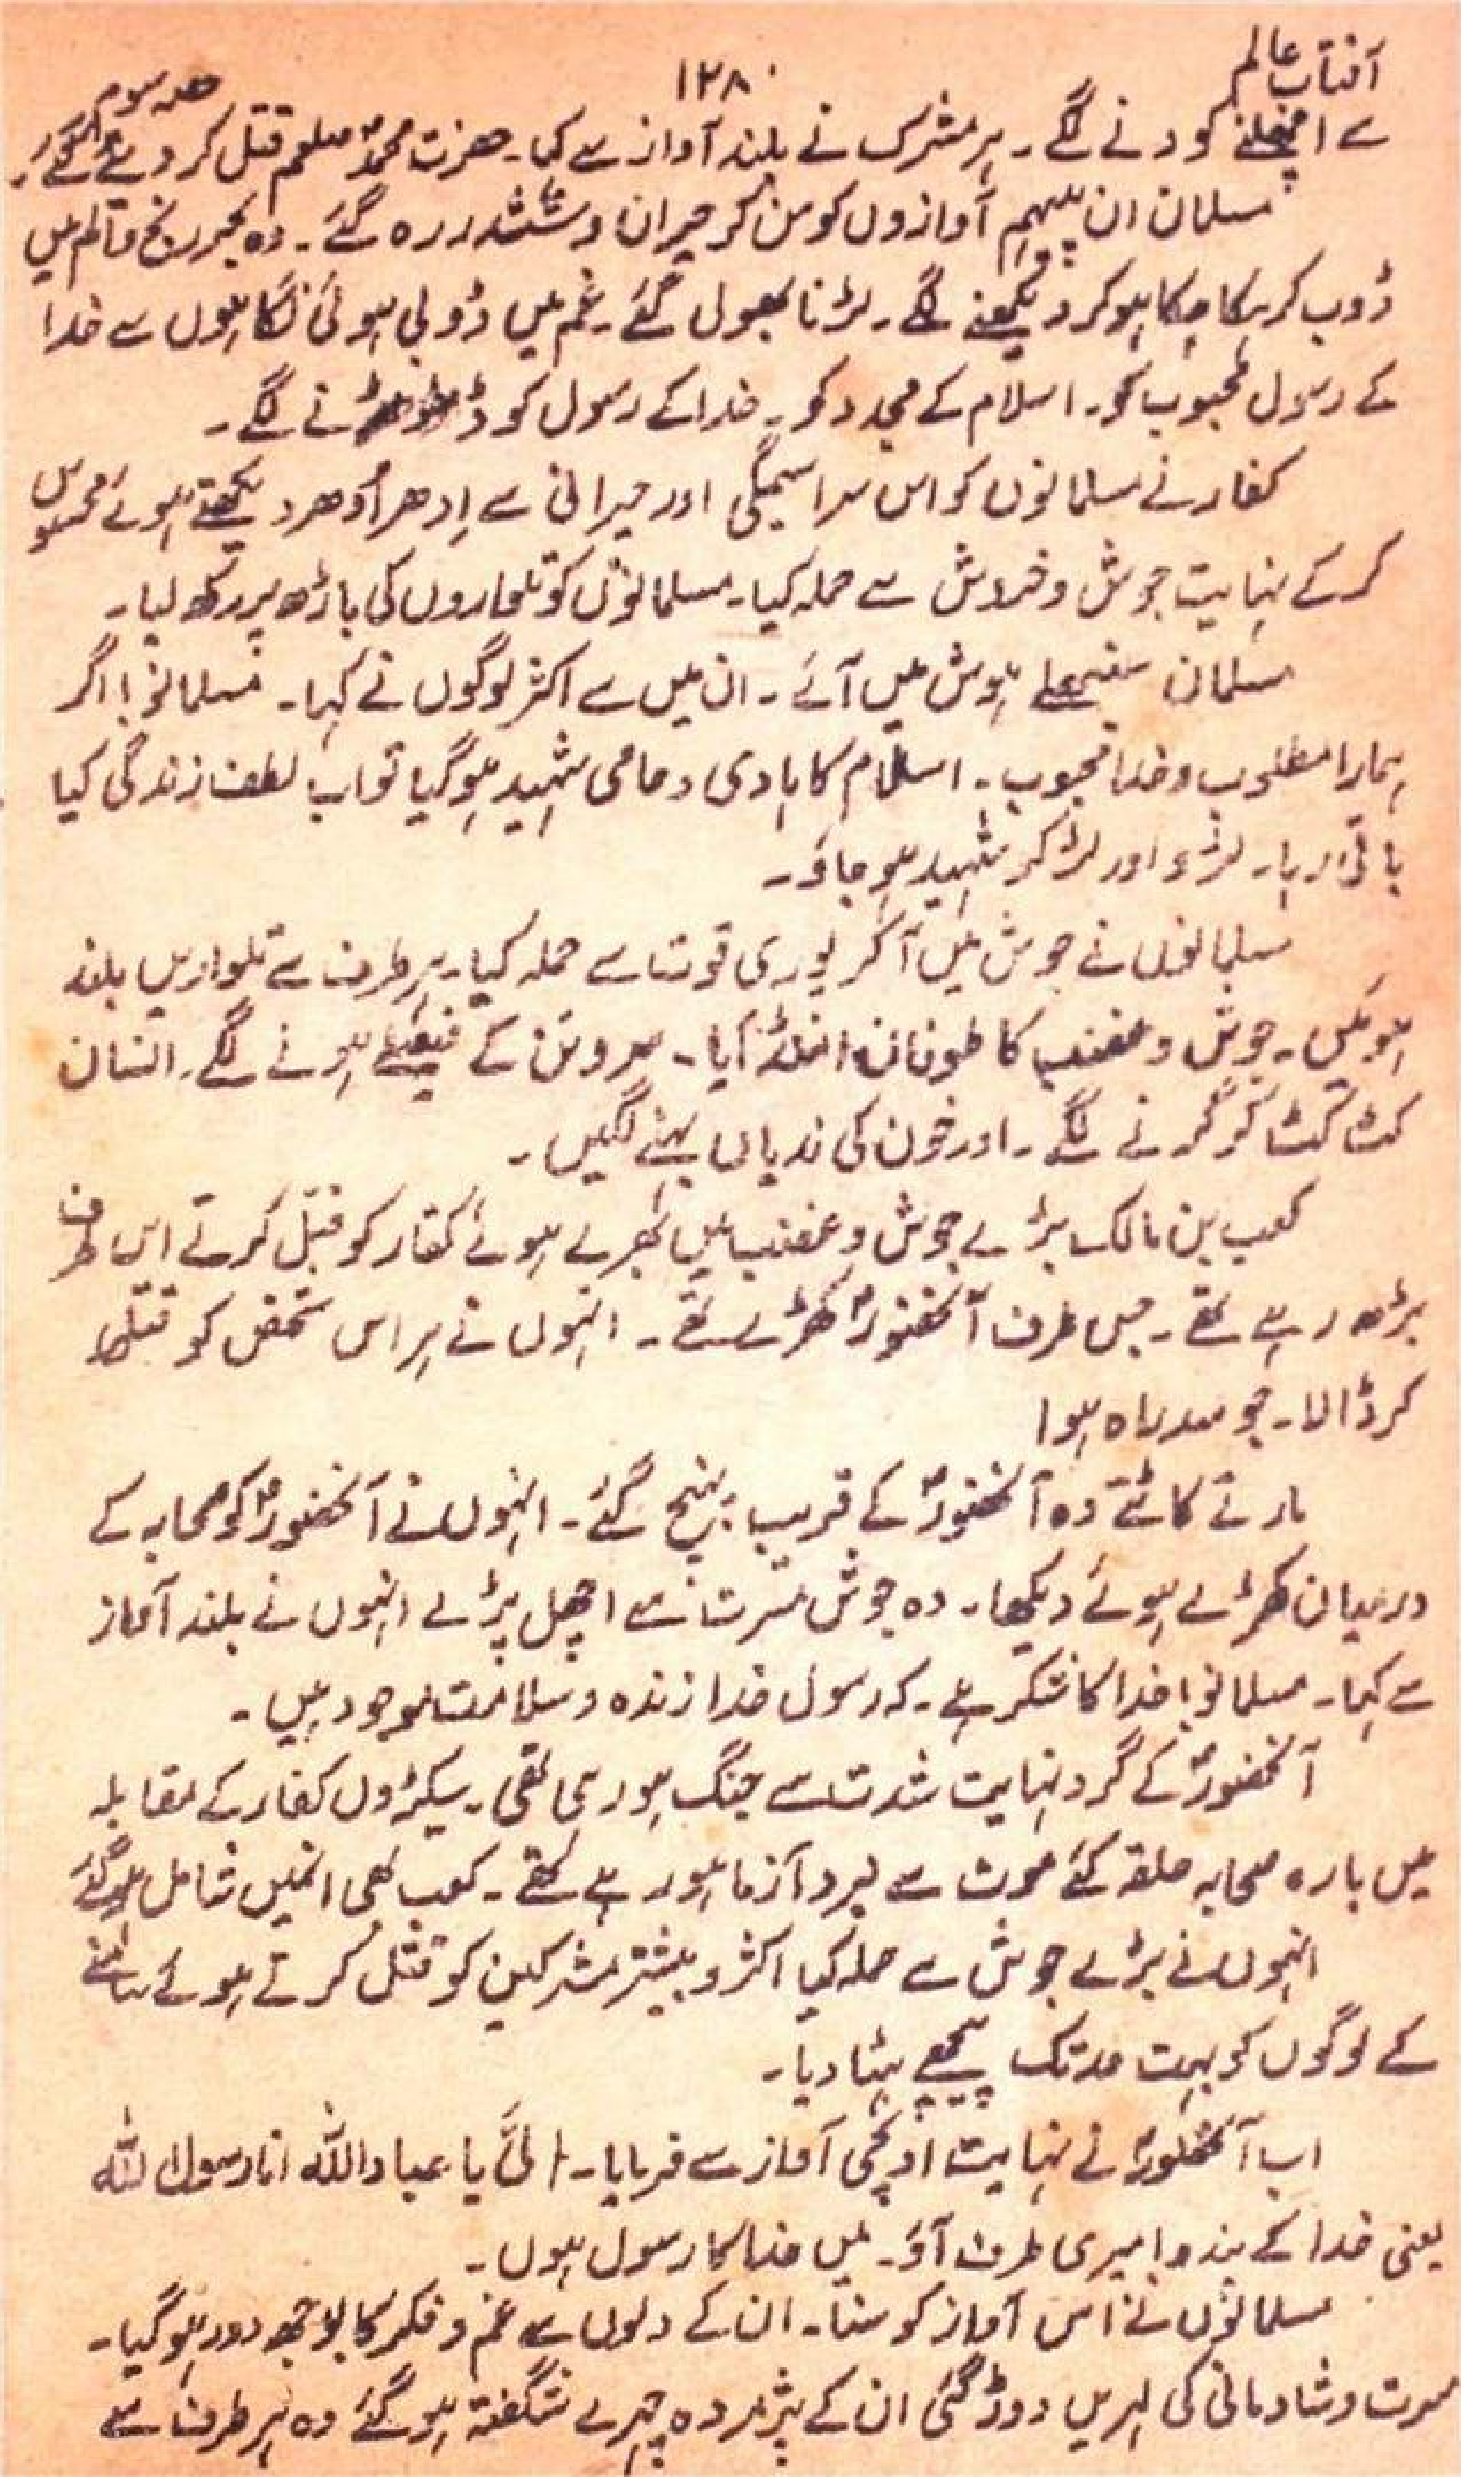 آفتاب عالم
۱۲۸
حصہ سوم
سے اچھلنے کودنے لگے ۔ ہر مشرک نے بلند آواز سے کہا ۔ حضرت محمدؐ صلعم قتل کر دئے گئے ۔
مسلمان ان پیہم آوازوں کو سن کر حیران و ششدر رہ گئے ۔ وہ بحر رنج و الم میں
ڈوب کر ہکا بکا ہو کر دیکھنے لگے ۔ لڑنا بھول گئے ۔ غم میں ڈوبی ہوئی نگاہوں سے خدا
کے رسول محبوب کو ۔ اسلام کے مجدد کو ۔ خدا کے رسول کو ڈھونڈھنے لگے ۔
کفار نے مسلمانوں کو اس سراسیمگی اور حیرانی سے اِدھر اُدھر دیکھتے ہوئے محسوس
کر کے نہایت جوش و خروش سے حملہ کیا ۔ مسلمانوں کو تلواروں کی باڑھ پر رکھ لیا ۔
مسلمان سنبھلے ہوش میں آئے ۔ ان میں سے اکثر لوگوں نے کہا ۔ مسلمانو ! اگر
ہمارا مطلوب و خدا محبوب ۔ اسلام کا ہادی و حامی شہید ہو گیا تو اب لطف زندگی کیا
باقی رہا ۔ لڑو اور لڑ کر شہید ہو جاؤ ۔
مسلمانوں نے جوش میں آ کر پوری قوت سے حملہ کیا ۔ ہر طرف سے تلواریں بلند
ہوئیں ۔ جوش و غضب کا طوفان امنڈ آیا ۔ سر و تن کے فیصلے ہونے لگے ۔ انسان
کٹ کٹ کر گرنے لگے ۔ اور خون کی ندیاں بہنے لگیں ۔
کعب بن مالک بڑے جوش و غضب میں بھرے ہوئے کفار کو قتل کرتے اس طرف
بڑھ رہے تھے ۔ جس طرف آنحضورؐ کھڑے تھے ۔ انہوں نے ہر اس شخص کو قتل
کر ڈالا ۔ جو سد راہ ہوا
مارتے کاٹتے وہ آنحضورؐ کے قریب پہنچ گئے ۔ انہوں نے آنحضورؐ کو صحابہ کے
درمیان کھڑے ہوئے دیکھا ۔ وہ جوش مسرت سے اچھل پڑے انہوں نے بلند آواز
سے کہا ۔ مسلمانو ! خدا کا شکر ہے ۔ کہ رسول خدا زندہ و سلامت موجود ہیں ۔
آنحضورؐ کے گرد نہایت شدت سے جنگ ہو رہی تھی ۔ سیکڑوں کفار کے مقابلہ
میں بارہ صحابہ حلقہ کئے موت سے نبرد آزما ہو رہے تھے ۔ کعب بھی انہیں شامل ہو گئے
انہوں نے بڑے جوش سے حملہ کیا اکثر و بیشتر مشرکین کو قتل کرتے ہوئے سامنے
کے لوگوں کو بہت حد تک پیچھے ہٹا دیا ۔
اب آنحضورؐ نے نہایت اونچی آواز سے فرمایا ۔ الیَّ یا عباد اللہ انا رسول اللہ
یعنی خدا کے بندو ! میری طرف آؤ ۔ میں خدا کا رسول ہوں ۔
مسلمانوں نے اس آواز کو سنا ۔ ان کے دلوں سے غم و فکر کا بوجھ دور ہو گیا ۔
مسرت و شادمانی کی لہریں دوڑ گئی ان کے پژمردہ چہرے شگفتہ ہو گئے وہ ہر طرف سے